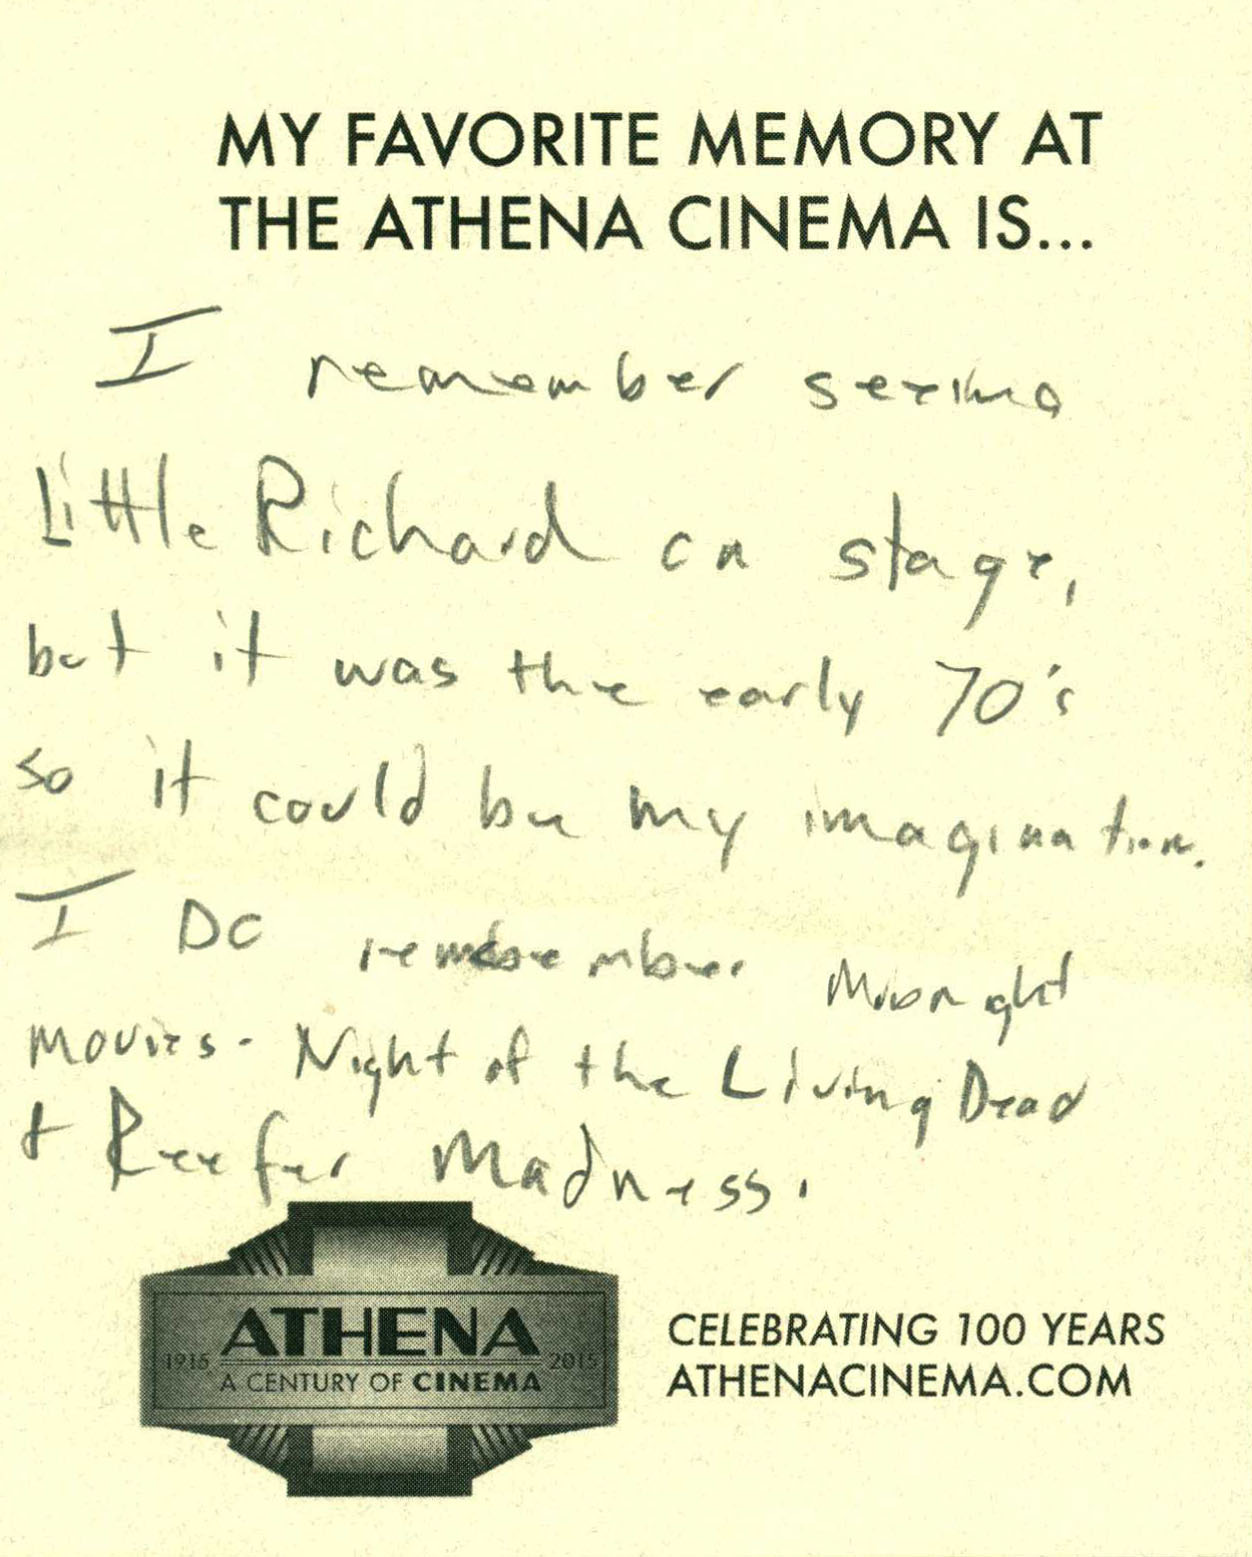 MY FAVORITE MEMORY AT
THE ATHENA CINEMA IS...
I remember seeing
Little Richard on stage,
but it was the early 70's
so it could be my imagination.
I DO remember Midnight
Movies. Night of the Living Dead
& Reefer Madness.
ATHENA
1915 2015
A CENTURY OF CINEMA
CELEBRATING 100 YEARS
ATHENACINEMA.COM